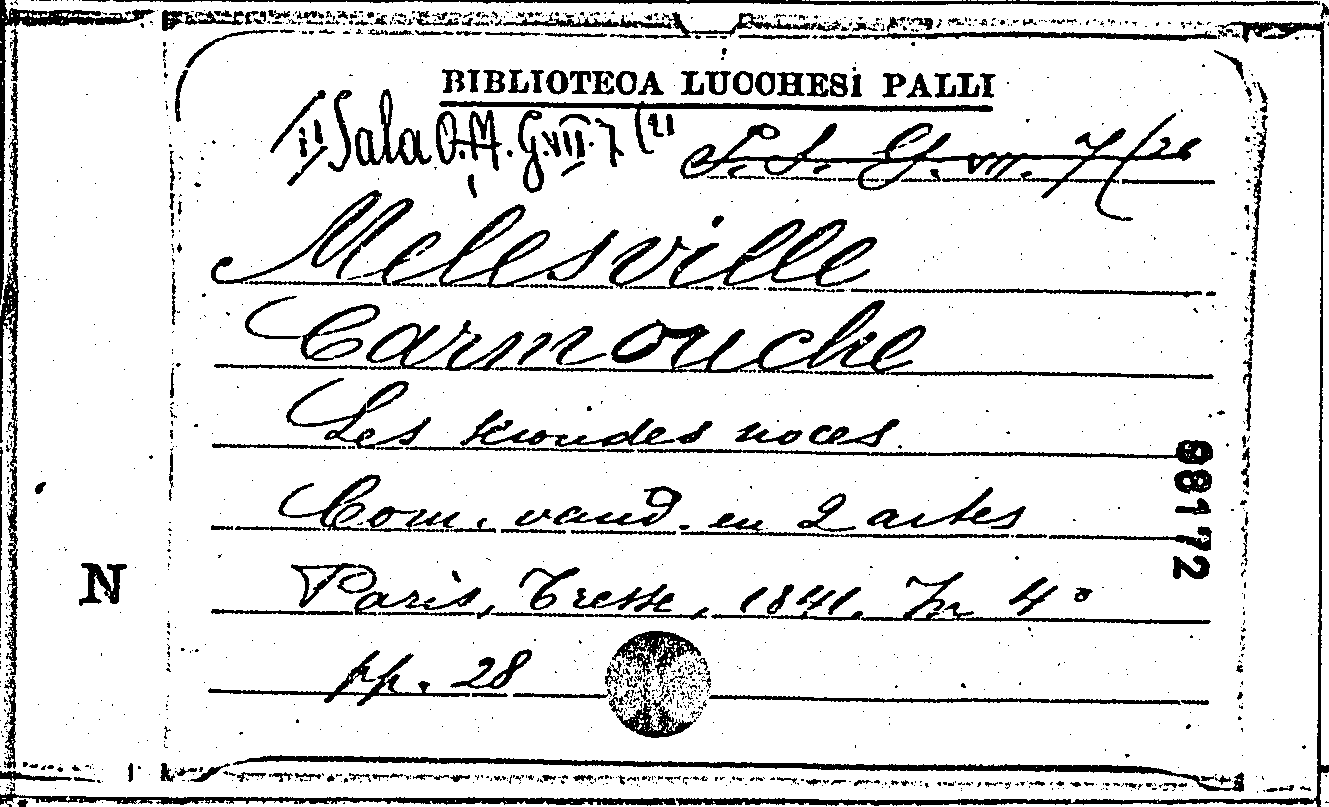 BIBLIOTECA LUCCHESI PALLI
II Sala O.A. G.VII.7(21 S. S. G. VII. 7(26
Melesville
Carmouche
Les secondes noces
Com. vaud. en 2 actes
Paris, Tresse, 1841. In 4°
pp. 28
N
98172